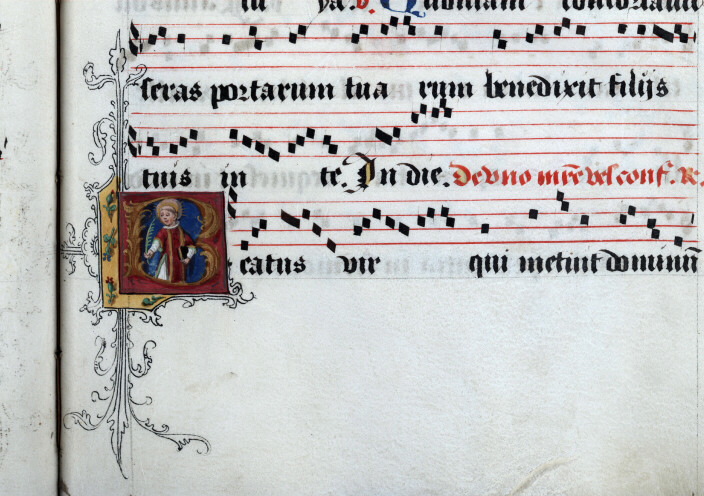 ya. v. Quoniam confortavit
seras portarum tua rum benedixit filijs
tuis in te. In die. De uno mr̄e vel conf. R.
Beatus vir qui metint dominū